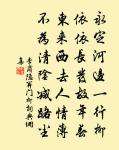 永定河邊一行柳
依依長發故年春
東來西去人情薄
不為清陰減路塵
李商隱 門柳